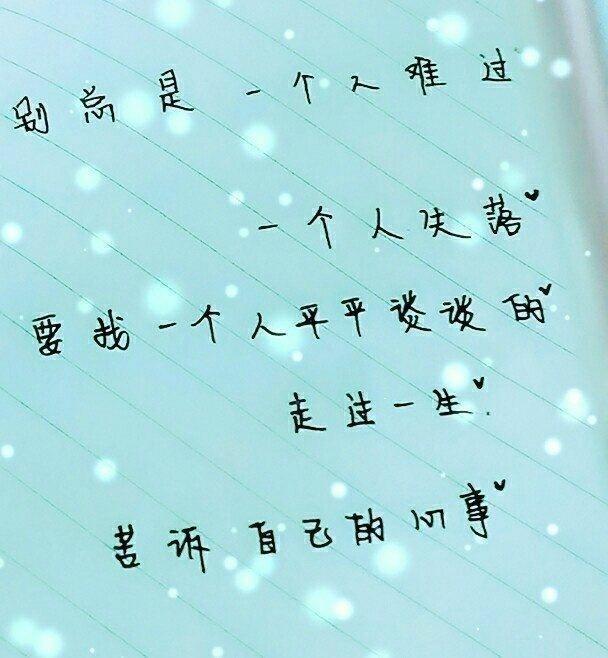 别总是一个人难过
一个人失落
要找一个人平平谈谈的
走过一生
苦诉自己的心事